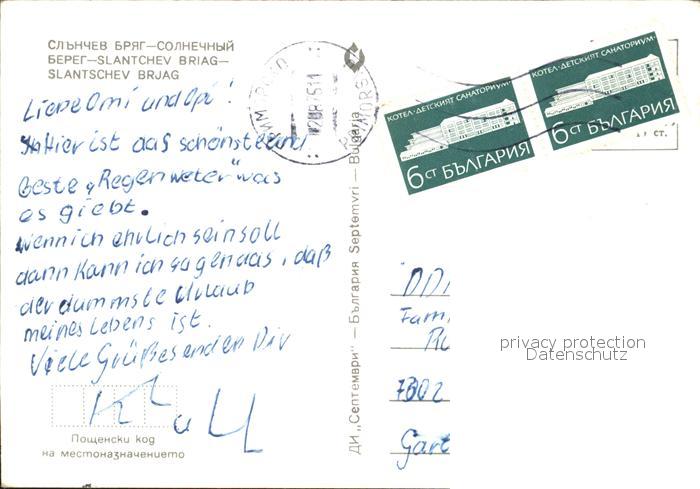 СЛЪНЧЕВ БРЯГ—СОЛНЕЧНЫЙ
БЕРЕГ—SLANTCHEV BRIAG—
SLANTSCHEV BRJAG
Liebe Omi und Opi!
Hier ist das schönste und
beste „Regenwetter“ was
es giebt.
wenn ich ehrlich sein soll
dann kann ich sagen das, daß
der dummste Urlaub
meines Lebens ist.
Viele Grüße senden Dir
K u U
Пощенски код
на местоназначението
ДИ „Септември“ — България Septemvri — Bulgaria
КОТЕЛ·ДЕТСКИЯТ САНАТОРИУМ·
6 СТ БЪЛГАРИЯ
КОТЕЛ·ДЕТСКИЯТ САНАТОРИУМ·
6 СТ БЪЛГАРИЯ
СТ.
DD
Fam
7302
Gart
privacy protection
Datenschutz